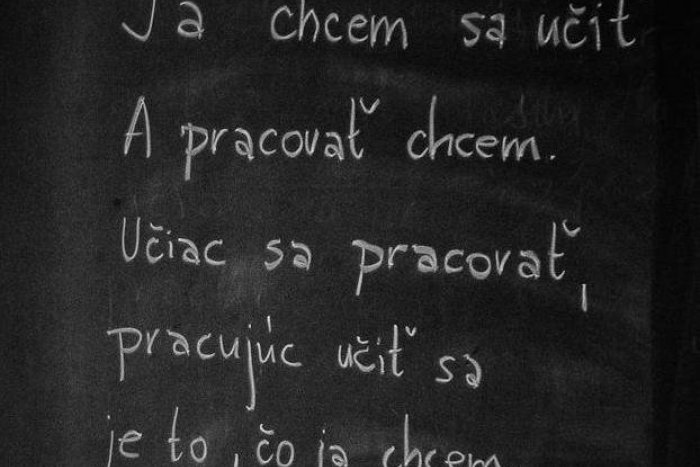 Ja chcem sa učiť
A pracovať chcem.
Učiac sa pracovať,
pracujúc učiť sa
je to, čo ja chcem